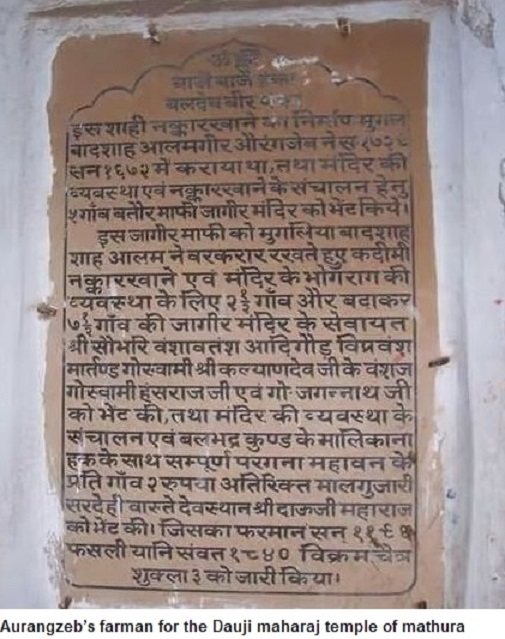 बाजे बाजे
बलदेव बीर
इस शाही नक्कारखाने का निर्माण मुगल
बादशाह आलमगीर औरंगजेब ने स. १७२९
सन १६७२ में कराया था, तथा मंदिर की
व्यवस्था एवं नक्कारखाने के संचालन हेतु
५ गाँव बतौर माफी जागीर मंदिर को भेंट किये।
इस जागीर माफी को मुगलिया बादशाह
शाह आलम ने वरकरार रखते हुए कदीमी
नक्कारखाने एवं मंदिर के भोगराग की
व्यवस्था के लिए २१/२ गाँव और बढाकर
७१/२ गाँव की जागीर मंदिर के सेवायत
श्री सौभरि वंशावतंश आदिगौड़ विप्रवंश
मार्तण्ड गोस्वामी श्री कल्याणदेव जी के वंशज
गोस्वामी हंसराज जी एवं गो. जगन्नाथ जी
को भेंट की, तथा मंदिर की व्यवस्था के
संचालन एवं बलभद्र कुण्ड के मालिकाना
हक के साथ सम्पूर्ण परगना महावन के
प्रति गाँव २ रुपया अतिरिक्त मालगुजारी
सरदेही वास्ते देवस्थान श्री दाऊजी महाराज
को भेंट की। जिसका फरमान सन
फसली यानि संवत १८४० विक्रम चैत्र
शुक्ला ३ को जारी किया।
Aurangzeb's farman for the Dauji maharaj temple of mathura